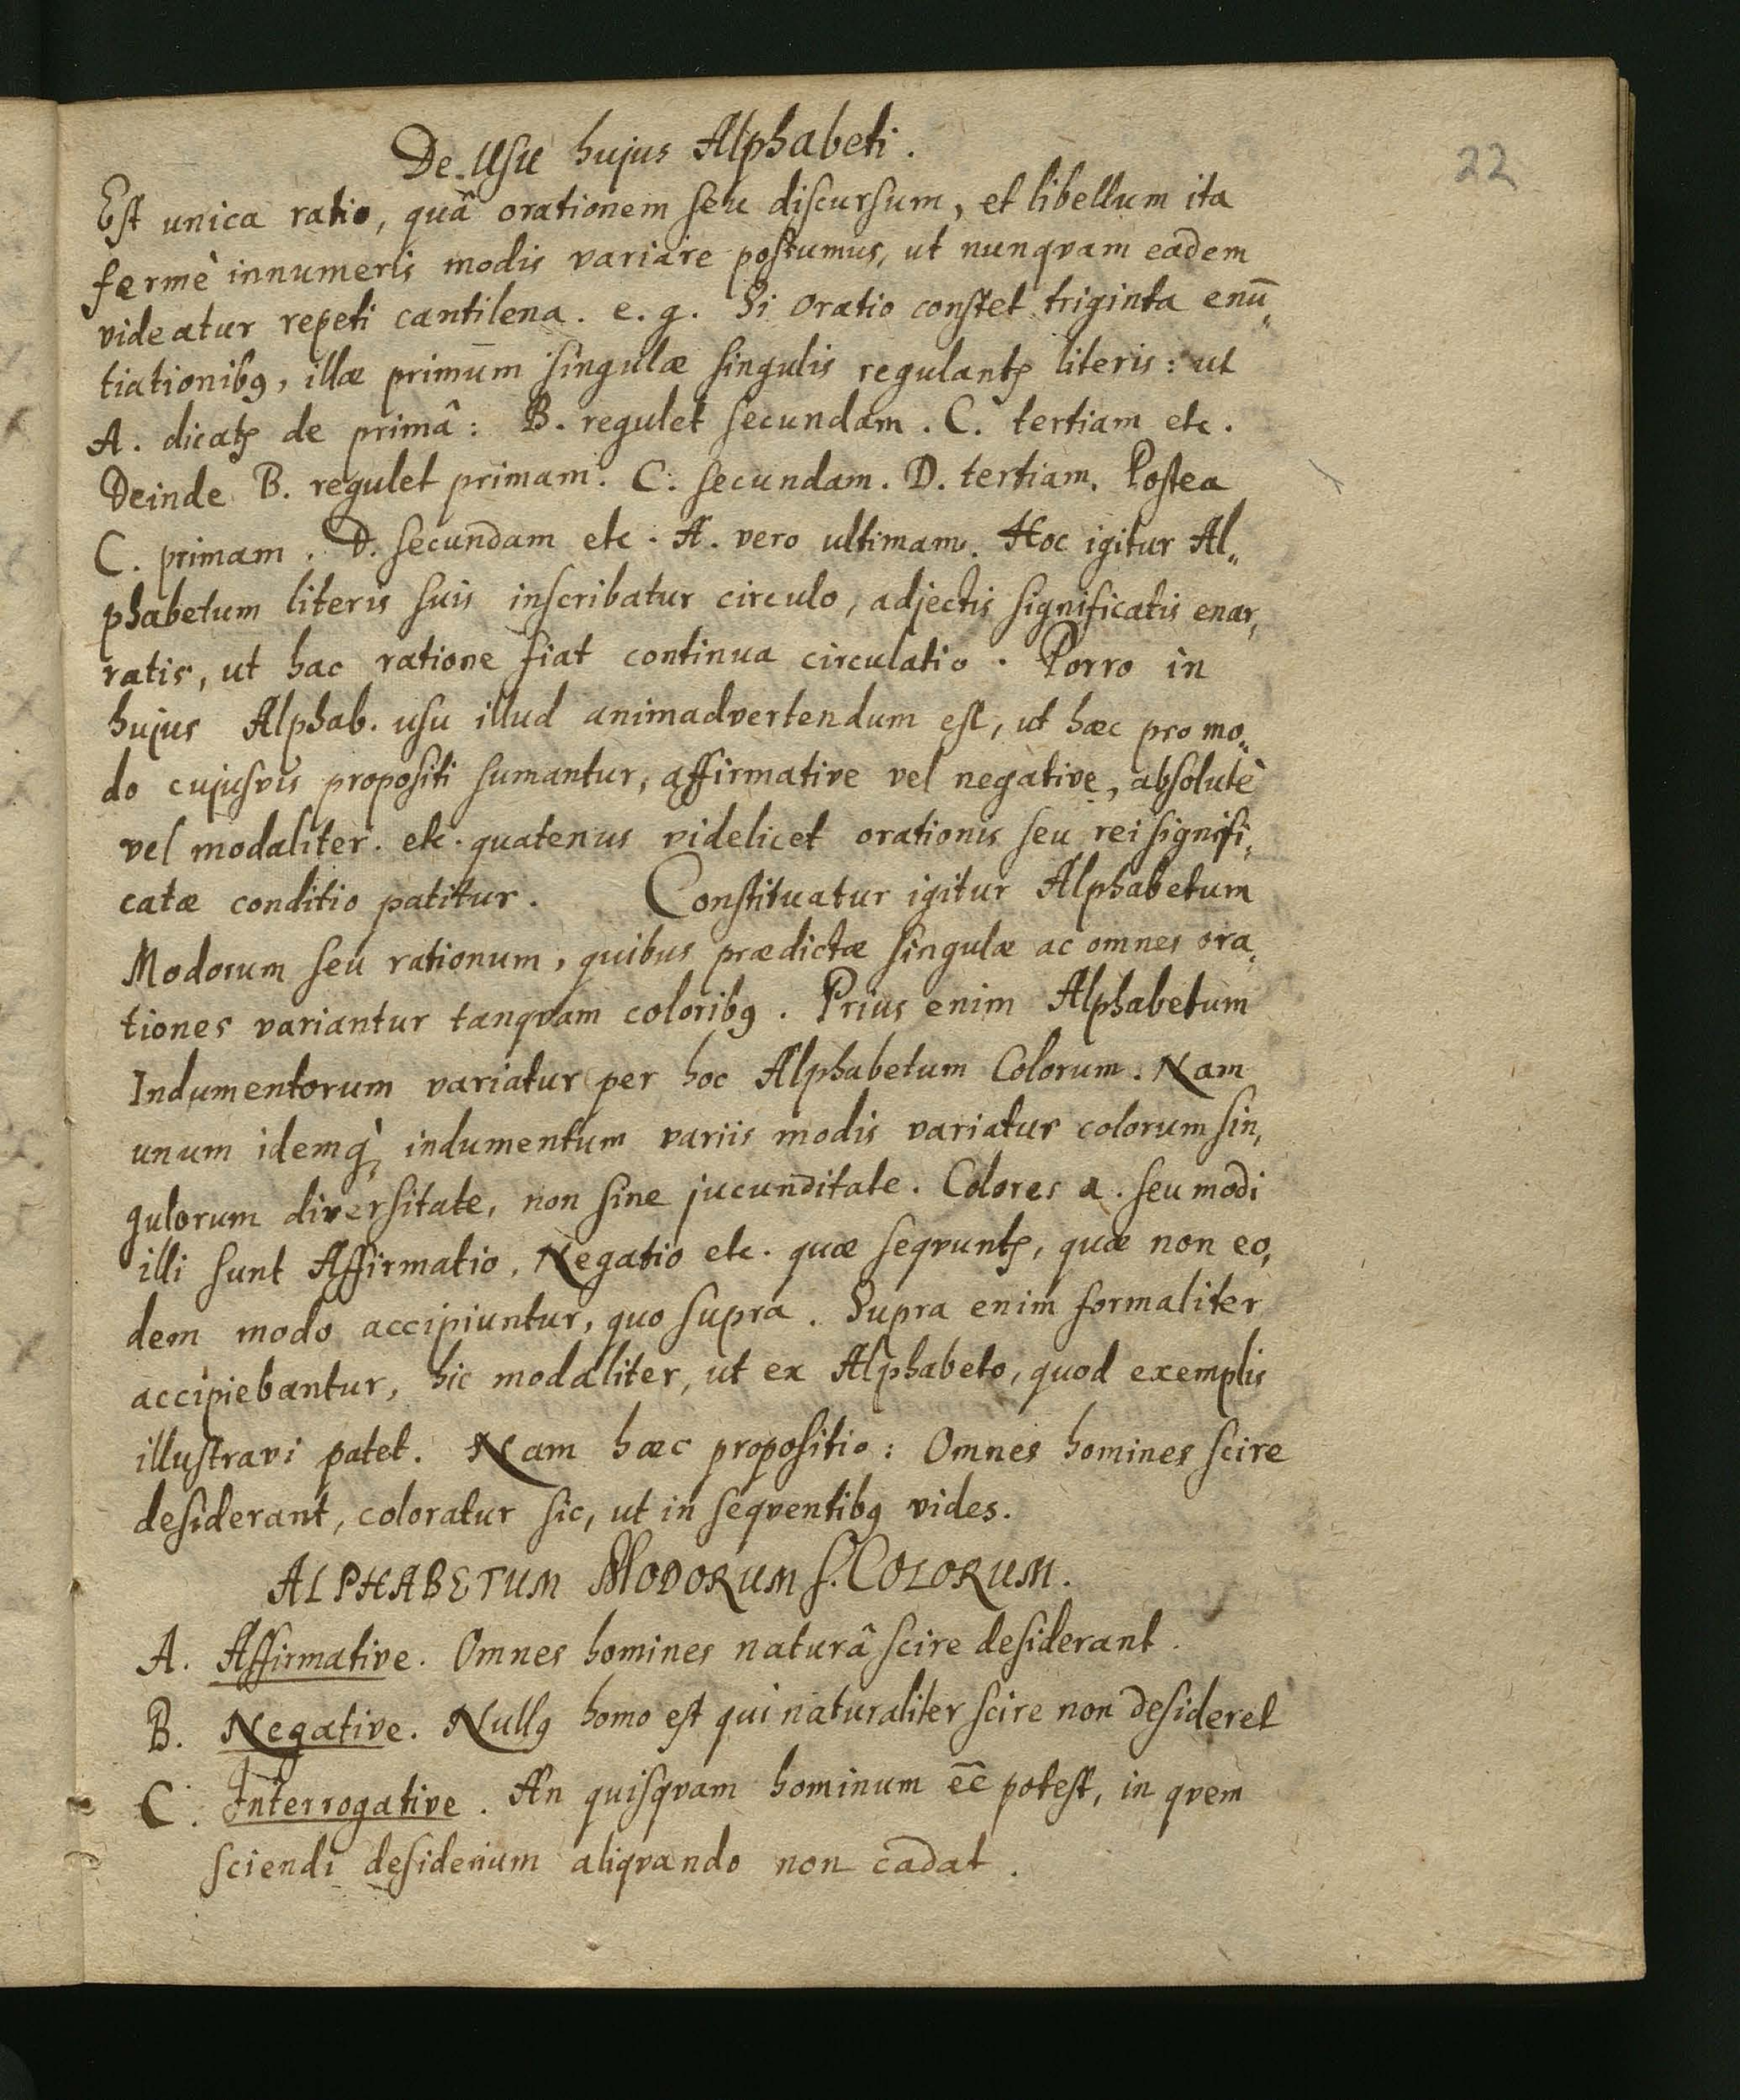 22
De Usu hujus Alphabeti.
Est unica ratio, quâ orationem seu discursum, et libellum ita
fermè innumeris modis variare possumus, ut nunqvam eadem
videatur repeti cantilena. e. g. Si Oratio constet triginta enū„
tiationibꝯ, illæ primum singulæ singulis regulantꝭ literis: ut
A. dicatꝭ de primâ: B. regulet secundam. C. tertiam etc.
Deinde B. regulet primam. C. secundam. D. tertiam. Postea
C. primam. D. secundam etc. A. vero ultimam. Hoc igitur Al„
phabetum literis suis inscribatur circulo, adjectis significatis enar„
ratis, ut hac ratione fiat continua circulatio. Porro in
hujus Alphab. usu illud animadvertendum est, ut hæc pro mo„
do cujusvis propositi sumantur, affirmative vel negative, absolutè
vel modaliter. etc. quatenus videlicet orationis seu rei signifi„
catæ conditio patitur. Constituatur igitur Alphabetum
Modorum seu rationum, quibus prædictæ singulæ ac omnes ora„
tiones variantur tanqvam coloribꝯ. Prius enim Alphabetum
Indumentorum variatur per hoc Alphabetum Colorum. Nam
unum idemq̀ꝫ indumentum variis modis variatur colorum sin„
gulorum diversitate, non sine jucunditate. Colores a. seu modi
illi sunt Affirmatio, Negatio etc. quæ seqvuntꝭ, quæ non eo„
dem modo accipiuntur, quo supra. Supra enim formaliter
accipiebantur, hic modaliter, ut ex Alphabeto, quod exemplis
illustravi patet. Nam hæc propositio: Omnes homines scire
desiderant, coloratur sic, ut in seqventibꝯ vides.
ALPHABETUM MODORUM s. COLORUM.
A. Affirmative. Omnes homines naturâ scire desiderant.
B. Negative. Nullꝯ homo est qui naturaliter scire non desideret
C. Interrogative. An quisqvam hominum ēē potest, in qvem
sciendi desiderium aliqvando non cadat.